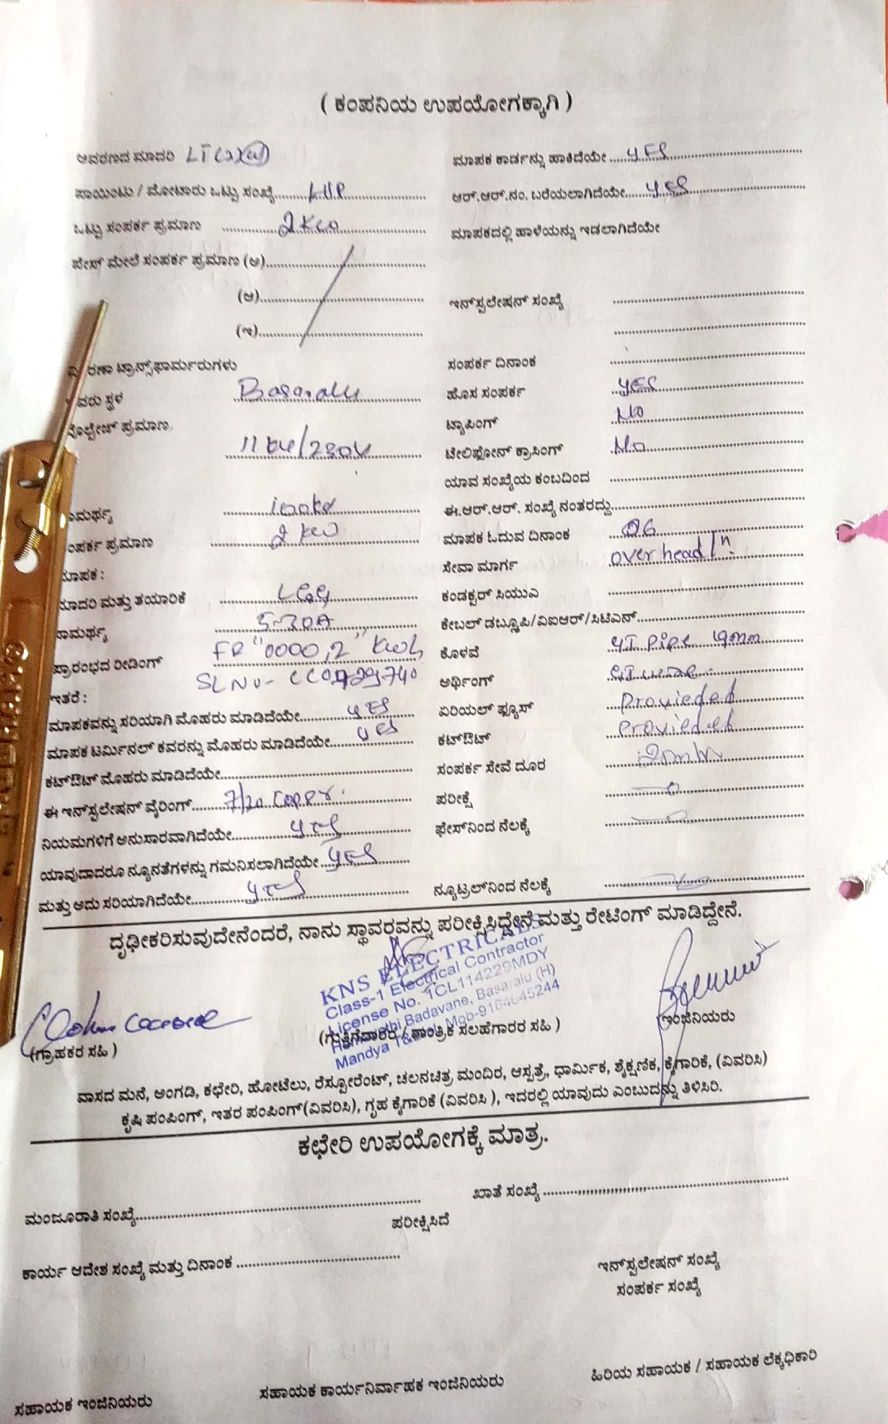 ( ಕಂಪನಿಯ ಉಪಯೋಗಕ್ಕಾಗಿ )
ಆವರಣದ ಮಾದರಿ LT
ಮಾಪಕ ಕಾರ್ಡನ್ನು ಹಾಕಿದೆಯೇ .... YES
ಪಾಯಿಂಟು / ಮೋಟಾರು ಒಟ್ಟು ಸಂಖ್ಯೆ
ಆರ್.ಆರ್.ನಂ. ಬರೆಯಲಾಗಿದೆಯೇ.... YES
ಒಟ್ಟು ಸಂಪರ್ಕ ಪ್ರಮಾಣ 2 KW
ಮಾಪಕದಲ್ಲಿ ಹಾಳೆಯನ್ನು ಇಡಲಾಗಿದೆಯೇ
ಫೇಸ್ ಮೇಲೆ ಸಂಪರ್ಕ ಪ್ರಮಾಣ (ಅ)
(ಆ)
ಇನ್‌ಸ್ಟಲೇಷನ್ ಸಂಖ್ಯೆ
(ಇ)
ರಣಾ ಟ್ರಾನ್ಸ್‌ಫಾರ್ಮರುಗಳು
ಸಂಪರ್ಕ ದಿನಾಂಕ
ವರು ಸ್ಥಳ Basaralu
ಹೊಸ ಸಂಪರ್ಕ YES
ವೋಲ್ಟೇಜ್ ಪ್ರಮಾಣ 11 KV/230V
ಟ್ಯಾಪಿಂಗ್ NO
ಟೇಲಿಫೋನ್ ಕ್ರಾಸಿಂಗ್ NO
ಯಾವ ಸಂಖ್ಯೆಯ ಕಂಬದಿಂದ
ಾಮರ್ಥ್ಯ
ಈ.ಆರ್.ಆರ್. ಸಂಖ್ಯೆ ನಂತರದ್ದು
ಂಪರ್ಕ ಪ್ರಮಾಣ 2 KW
ಮಾಪಕ ಓದುವ ದಿನಾಂಕ 06
ಮಾಪಕ :
ಸೇವಾ ಮಾರ್ಗ over head
ಮಾದರಿ ಮತ್ತು ತಯಾರಿಕೆ
ಕಂಡಕ್ಟರ್ ಸಿಯುಎ
ಾಮರ್ಥ್ಯ 5-30A
ಕೇಬಲ್ ಡಬ್ಲೂಪಿ/ವಿಐಆರ್/ಸಿಟಿಎನ್
ಪ್ರಾರಂಭದ ರೀಡಿಂಗ್ FR "0000,2" KWh
ಕೊಳವೆ GI pipe 19mm
SL NO-
ಅರ್ಥಿಂಗ್ GI wire
ಇತರೆ :
ಮಾಪಕವನ್ನು ಸರಿಯಾಗಿ ಮೊಹರು ಮಾಡಿದೆಯೇ YES
ಏರಿಯಲ್ ಫ್ಯೂಸ್ Provieded
ಮಾಪಕ ಟರ್ಮಿನಲ್ ಕವರನ್ನು ಮೊಹರು ಮಾಡಿದೆಯೇ YES
ಕಟ್‌ಔಟ್ Provieded
ಕಟ್‌ಔಟ್ ಮೊಹರು ಮಾಡಿದೆಯೇ
ಸಂಪರ್ಕ ಸೇವೆ ದೂರ
ಈ ಇನ್‌ಸ್ಟಲೇಷನ್ ವೈರಿಂಗ್ 7/20 copper.
ಪರೀಕ್ಷೆ
ನಿಯಮಗಳಿಗೆ ಅನುಸಾರವಾಗಿದೆಯೇ YES
ಫೇಸ್‌ನಿಂದ ನೆಲಕ್ಕೆ
ಯಾವುದಾದರೂ ನ್ಯೂನತೆಗಳನ್ನು ಗಮನಿಸಲಾಗಿದೆಯೇ YES
ಮತ್ತು ಅದು ಸರಿಯಾಗಿದೆಯೇ YES
ನ್ಯೂಟ್ರಲ್‌ನಿಂದ ನೆಲಕ್ಕೆ
ದೃಢೀಕರಿಸುವುದೇನೆಂದರೆ, ನಾನು ಸ್ಥಾವರವನ್ನು ಪರೀಕ್ಷಿಸಿದ್ದೇನೆ ಮತ್ತು ರೇಟಿಂಗ್ ಮಾಡಿದ್ದೇನೆ.
KNS ELECTRICALS
Class-1 Electrical Contractor
License No. 1CL114229MDY
Badavane, Basaralu (H)
Mandya
(ಗ್ರಾಹಕರ ಸಹಿ )
(ಗುತ್ತಿಗೆದಾರರ / ತಾಂತ್ರಿಕ ಸಲಹೆಗಾರರ ಸಹಿ )
ಇಂಜಿನಿಯರು
ವಾಸದ ಮನೆ, ಅಂಗಡಿ, ಕಛೇರಿ, ಹೋಟೆಲು, ರೆಸ್ಟೋರೆಂಟ್, ಚಲನಚಿತ್ರ ಮಂದಿರ, ಆಸ್ಪತ್ರೆ, ಧಾರ್ಮಿಕ, ಶೈಕ್ಷಣಿಕ, ಕೈಗಾರಿಕೆ, (ವಿವರಿಸಿ)
ಕೃಷಿ ಪಂಪಿಂಗ್, ಇತರ ಪಂಪಿಂಗ್(ವಿವರಿಸಿ), ಗೃಹ ಕೈಗಾರಿಕೆ (ವಿವರಿಸಿ ), ಇದರಲ್ಲಿ ಯಾವುದು ಎಂಬುದನ್ನು ತಿಳಿಸಿರಿ.
ಕಛೇರಿ ಉಪಯೋಗಕ್ಕೆ ಮಾತ್ರ.
ಮಂಜೂರಾತಿ ಸಂಖ್ಯೆ
ಖಾತೆ ಸಂಖ್ಯೆ
ಪರೀಕ್ಷಿಸಿದೆ
ಕಾರ್ಯ ಆದೇಶ ಸಂಖ್ಯೆ ಮತ್ತು ದಿನಾಂಕ
ಇನ್‌ಸ್ಟಲೇಷನ್ ಸಂಖ್ಯೆ
ಸಂಪರ್ಕ ಸಂಖ್ಯೆ
ಸಹಾಯಕ ಇಂಜಿನಿಯರು
ಸಹಾಯಕ ಕಾರ್ಯನಿರ್ವಾಹಕ ಇಂಜಿನಿಯರು
ಹಿರಿಯ ಸಹಾಯಕ / ಸಹಾಯಕ ಲೆಕ್ಕಧಿಕಾರಿ